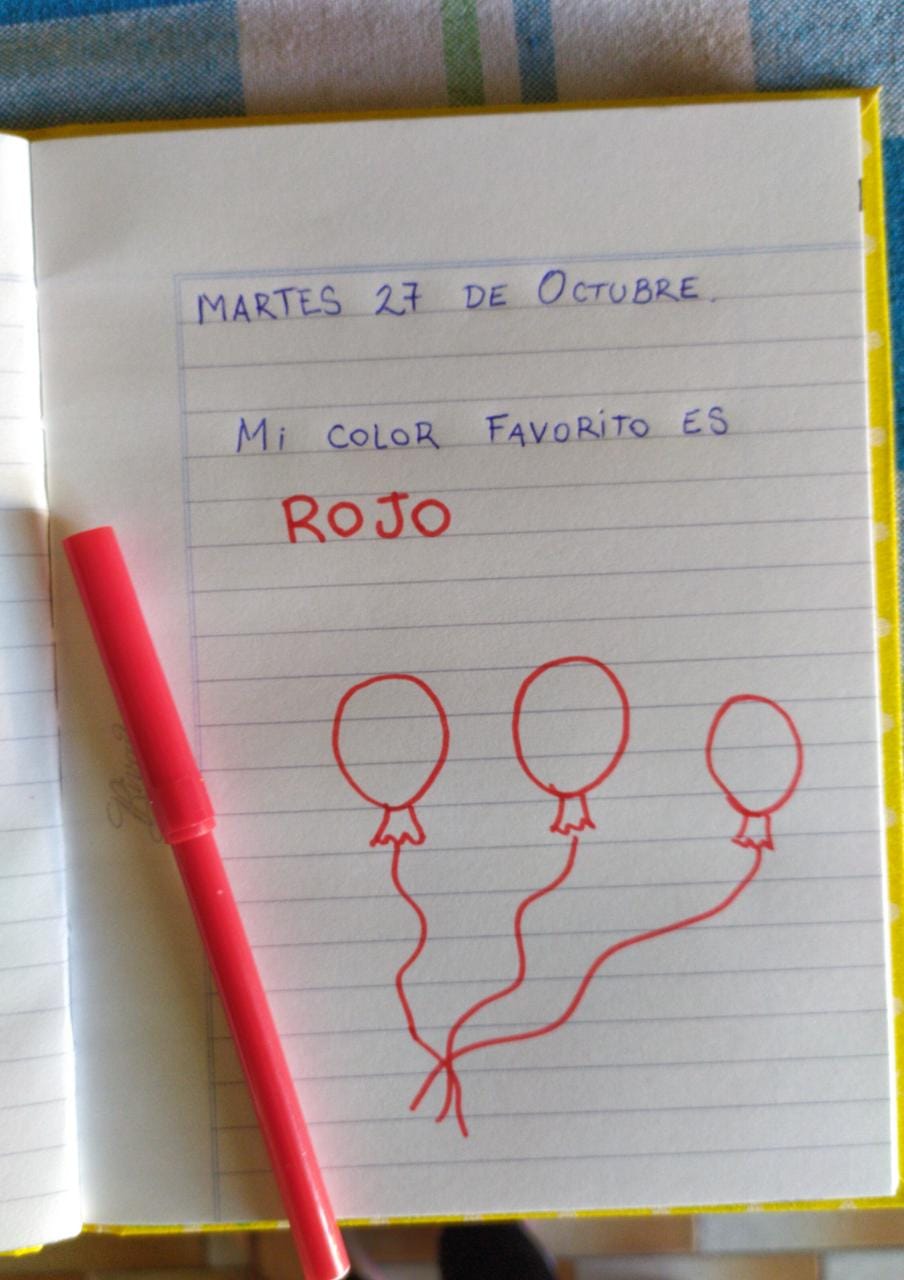 MARTES 27 DE OCTUBRE.
Mi COLOR FAVORiTO ES
ROJO